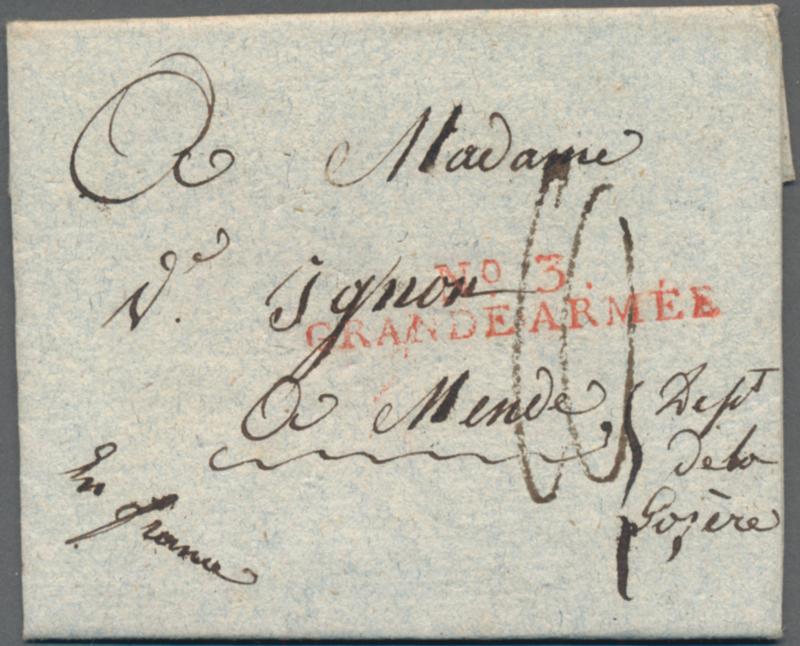 A Madame
Ve. Ignon
No 3.
GRANDE ARMÉE
A Mende,
Dept
de la
Lozère
En france